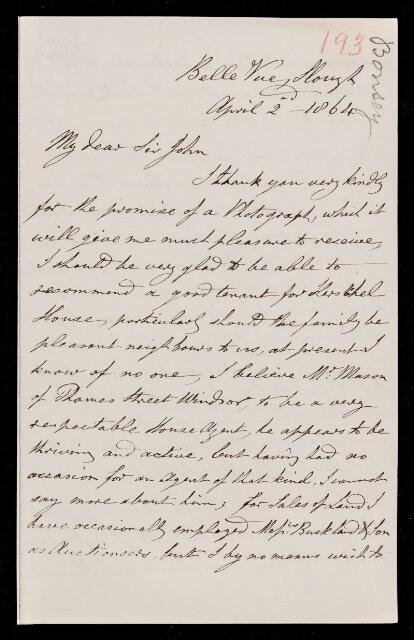 193
Bonsey
Belle Vue, Slough
April 2nd 1864
My dear Sir John
I thank you very kindly
for the promise of a Photograph, which it
will give me much pleasure to receive,
I should be very glad to be able to
recommend a good tenant for Herschel
House, particularly should the family be
pleasant neighbours to us, at present I
know of no one, I believe Mr. Mason
of Thames Street Windsor, to be a very
respectable House Agent, he appears to be
thriving and active, but having had no
occasion for an Agent of that kind, I cannot
say more about him; for Sales of Land I
have occasionally employed Messrs Buckland & Son
as Auctioneers, but I by no means wish to